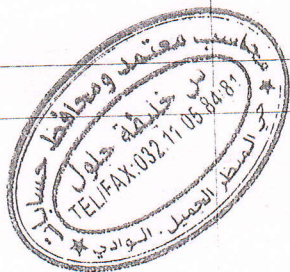 محاسب معتمد ومحافظ حسابات
بن خليفة جلول
TEL/FAX:032.11.05.84.81
حي المنظر الجميل . الوادي